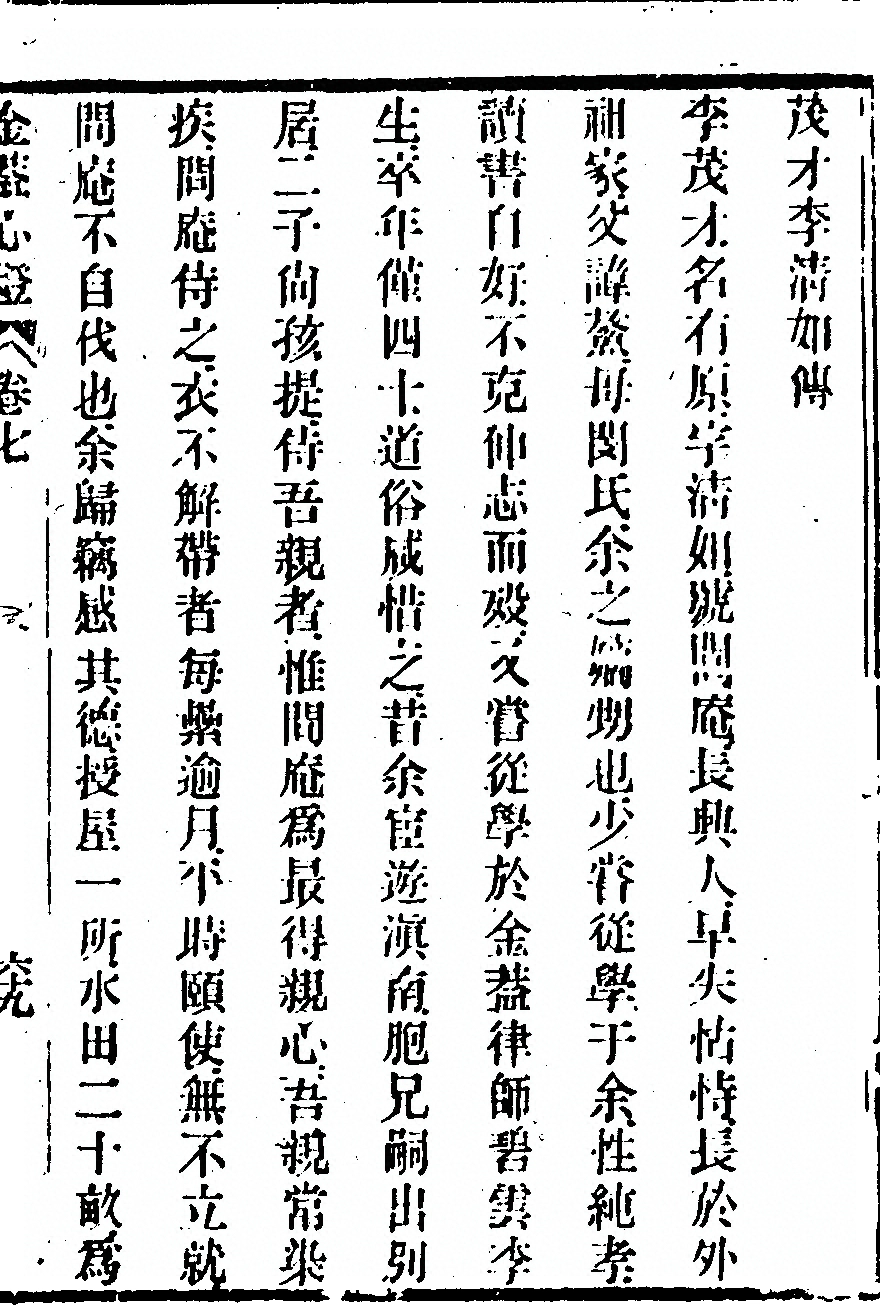 茂才李清如傳
李茂才名有原字清如號問庵長興人早失怙恃長於外
祖家父諱鰲母閔氏余之甥也少嘗從學于余性純孝
讀書自好不克伸志而歿又嘗從學於金蓋律師碧雲李
生卒年僅四十道俗咸惜之昔余宦遊滇南胞兄嗣出別
居二子尙孩提侍吾親者惟問庵爲最得親心吾親常染
疾問庵侍之衣不解帶者每纍逾月平時頤使無不立就
問庵不自伐也余歸竊感其德授屋一所水田二十畝爲
金蓋心燈 卷七 六九